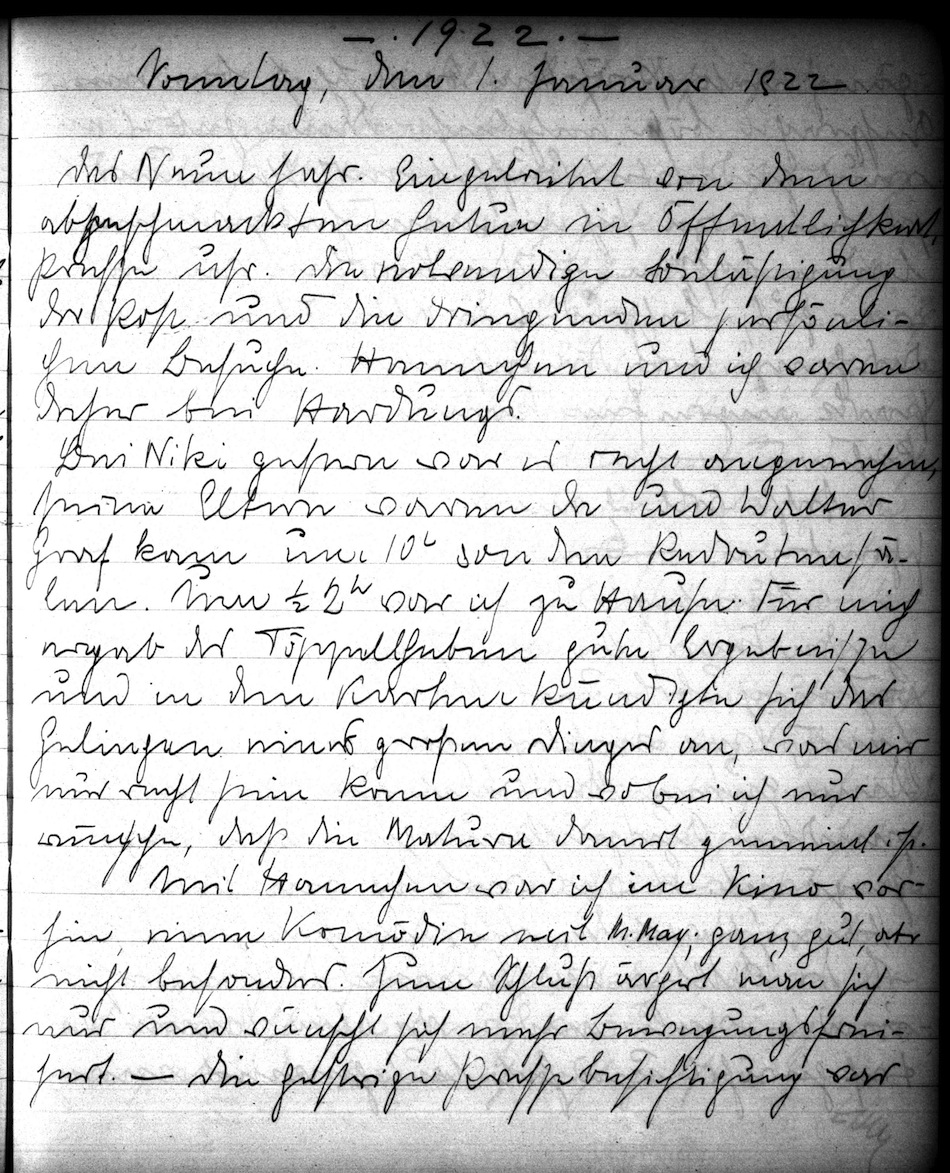 — . 1922 . —
Sonntag, den 1. Januar 1922
Das Neue Jahr. Eingeleitet von dem
abgeschmackten Getue in Öffentlichkeit,
Presse usf. Die notwendige Belästigung
der Post und die dringenden persönli-
chen Besuche. Hannchen und ich waren
daher bei Hardungs.
Bei Niki gestern war es recht angenehm,
seine Eltern waren da und Walter
Graf kam um 10h von den Redoutensä-
len. Um ½ 2h war ich zu Hause. Für mich
ergab das gute Ergebnisse
und in den Karten kündigte sich das
Gelingen eines großen Dinges an, was mir
nur recht sein kann und wobei ich nur
wünsche, daß die Matura damit gemeint ist.
Mit Hannchen war ich im Kino vor-
hin, eine Komödie mit M. May, ganz gut, aber
nicht besonders. Zum Schluß ärgert man sich
nur und wünscht sich mehr Bewegungsfrei-
heit. — Die gestrige Pressebesichtigung war